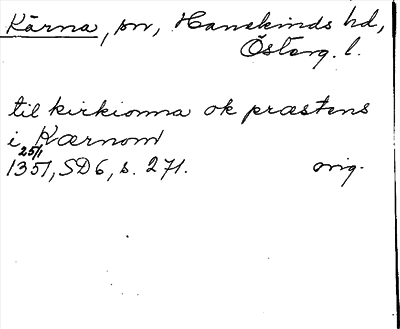 Kärna, sn, Hanekinds hd,
Österg. l.
til kirkionna ok præstens
i Kærnom
25/1
1351, SD 6, s. 271. orig.